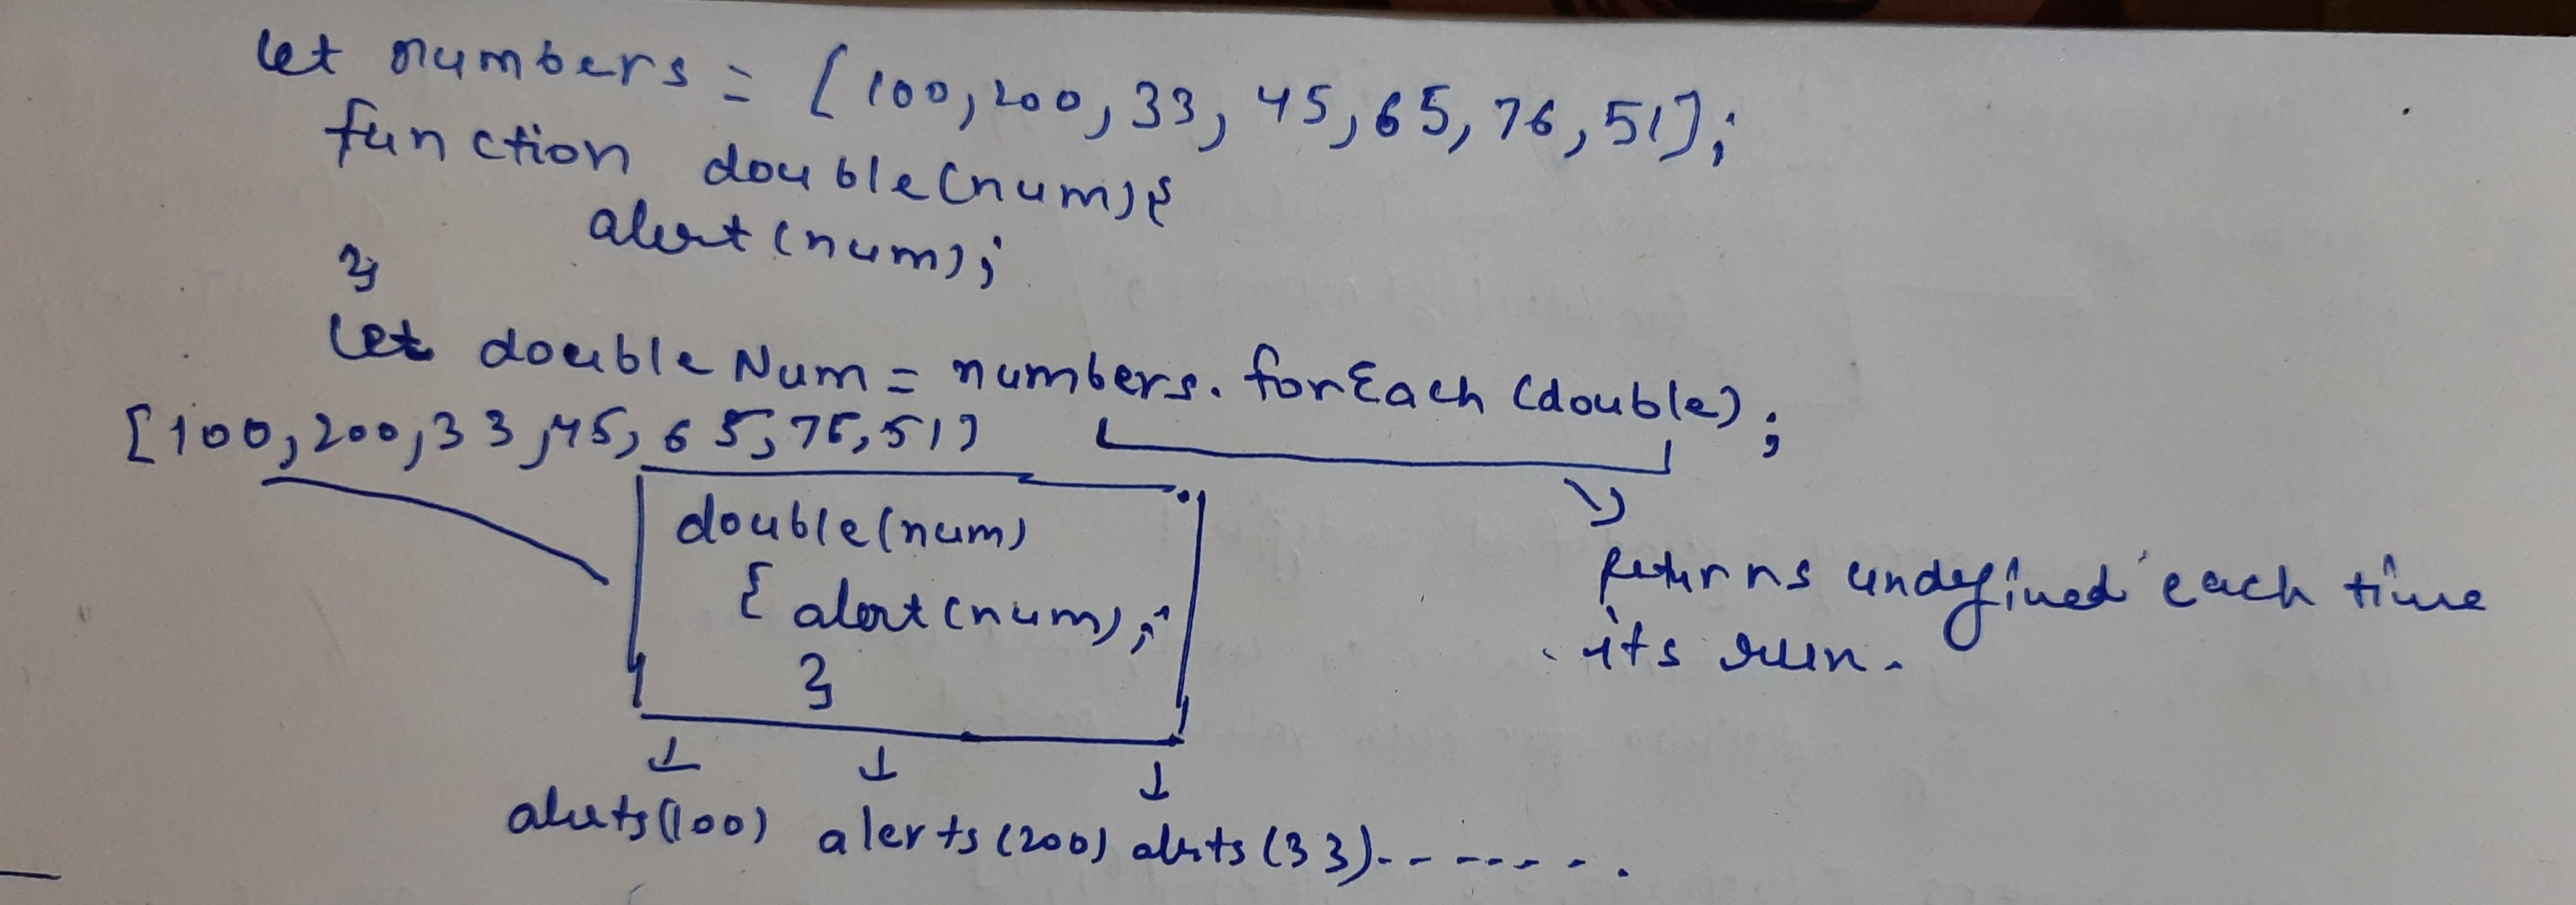 let numbers = [100,200,33,45,65,76,51];
function double(num){
alert(num);
}
let doubleNum = numbers.forEach(double);
[100,200,33,45,65,76,51]
double(num)
{ alert(num);
}
returns undefined each time
its run.
alerts(100) alerts(200) alerts(33)--------.